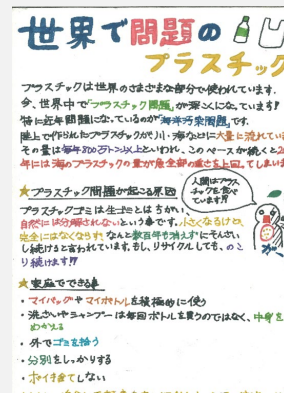 世界で問題の
プラスチック
プラスチックは世界のさまざまな部分で使われています。
今、世界中で「プラスチック問題」が深こくになっています!
特に近年問題になっているのが「海洋汚染問題」です。
陸上で作られたプラスチックが川・海などに大量に流れてい
その量は毎年800万トン以上といわれ、このペースが続くと2
年には海のプラスチックの量が魚全部の重さを上回ってしま
人間はプラス
チックを食べ
ています!?
★プラスチック問題が起こる原因
プラスチックゴミは生ゴミとはちがい、
自然には分解されないという事です。小さくなるけど、
完全にはなくならず、なんと数百年も消えずにそんざい
し続けると言われています。もし、リサイクルしても、のこ
り続けます!?
★家庭でできる事
・マイバッグやマイボトルを積極的に使う
・洗ざいやシャンプーは毎回ボトルを買うのではなく、中身を
めかえる
・外でゴミを拾う
・分別をしっかりする
・ポイ捨てしない